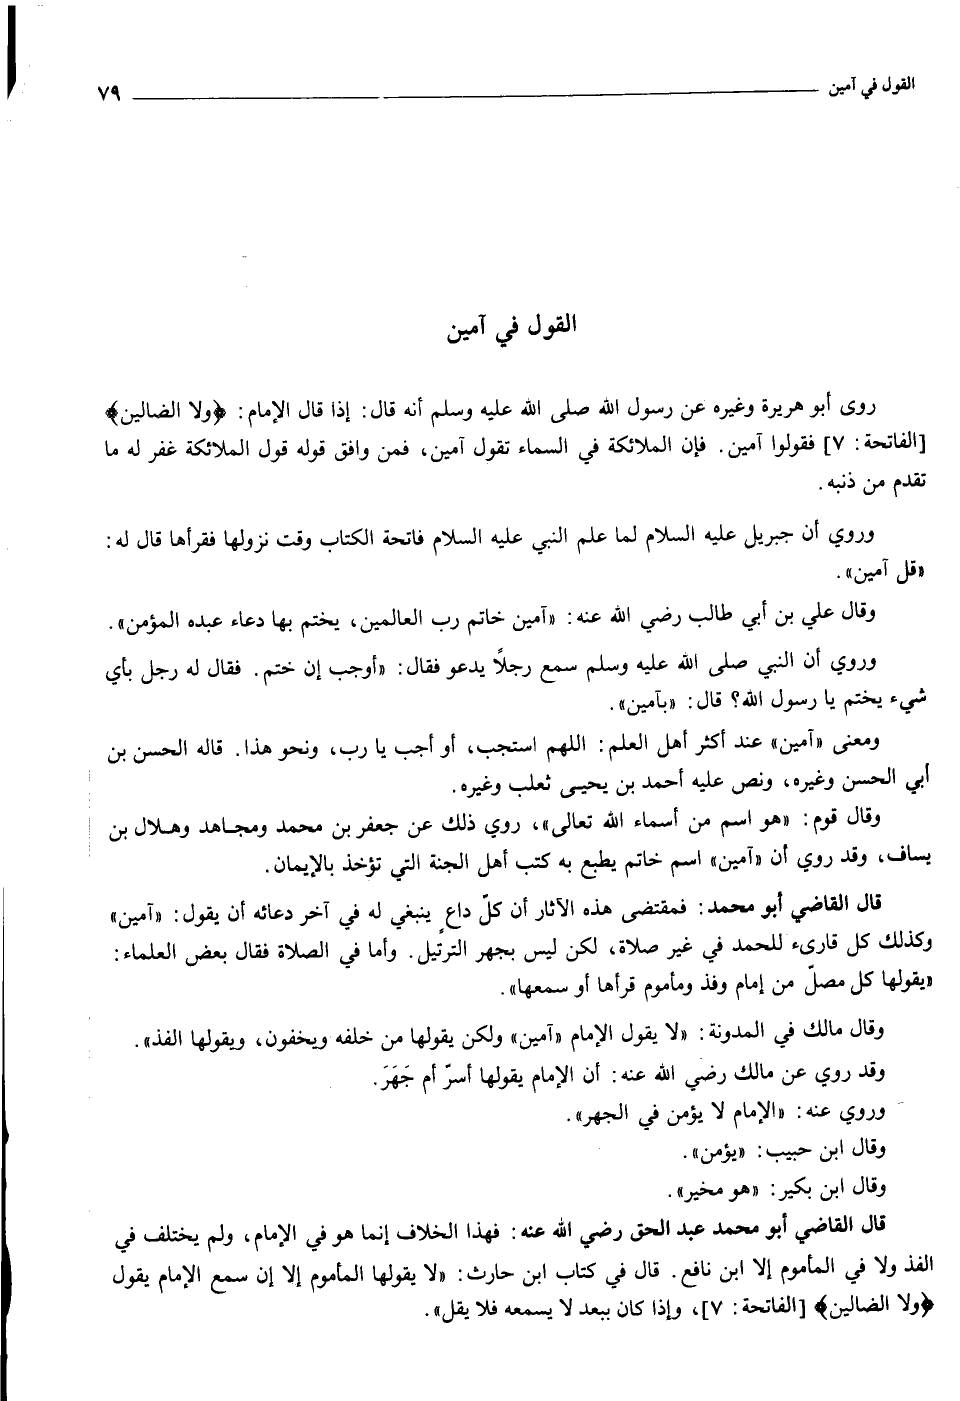 القول في آمين ٧٩
القول في آمين
روى أبو هريرة وغيره عن رسول الله صلى الله عليه وسلم أنه قال: إذا قال الإمام: ﴿ولا الضالين﴾
[الفاتحة: ٧] فقولوا آمين. فإن الملائكة في السماء تقول آمين، فمن وافق قوله قول الملائكة غفر له ما
تقدم من ذنبه.
وروي أن جبريل عليه السلام لما علم النبي عليه السلام فاتحة الكتاب وقت نزولها فقرأها قال له:
«قل آمين».
وقال علي بن أبي طالب رضي الله عنه: «آمين خاتم رب العالمين، يختم بها دعاء عبده المؤمن».
وروي أن النبي صلى الله عليه وسلم سمع رجلاً يدعو فقال: «أوجب إن ختم. فقال له رجل بأي
شيء يختم يا رسول الله؟ قال: «بآمين».
ومعنى «آمين» عند أكثر أهل العلم: اللهم استجب، أو أجب يا رب، ونحو هذا. قاله الحسن بن
أبي الحسن وغيره، ونص عليه أحمد بن يحيى ثعلب وغيره.
وقال قوم: «هو اسم من أسماء الله تعالى»، روي ذلك عن جعفر بن محمد ومجاهد وهلال بن
يساف، وقد روي أن «آمين» اسم خاتم يطبع به كتب أهل الجنة التي تؤخذ بالإيمان.
قال القاضي أبو محمد: فمقتضى هذه الآثار أن كلّ داعٍ ينبغي له في آخر دعائه أن يقول: «آمين»
وكذلك كل قارىء للحمد في غير صلاة، لكن ليس بجهر الترتيل. وأما في الصلاة فقال بعض العلماء:
«يقولها كل مصلّ من إمام وفذ ومأموم قرأها أو سمعها».
وقال مالك في المدونة: «لا يقول الإمام «آمين» ولكن يقولها من خلفه ويخفون، ويقولها الفذ».
وقد روي عن مالك رضي الله عنه: أن الإمام يقولها أسرّ أم جَهَرَ.
وروي عنه: «الإمام لا يؤمن في الجهر».
وقال ابن حبيب: «يؤمن».
وقال ابن بكير: «هو مخير».
قال القاضي أبو محمد عبد الحق رضي الله عنه: فهذا الخلاف إنما هو في الإمام، ولم يختلف في
الفذ ولا في المأموم إلا ابن نافع. قال في كتاب ابن حارث: «لا يقولها المأموم إلا إن سمع الإمام يقول
﴿ولا الضالين﴾ [الفاتحة: ٧]، وإذا كان ببعد لا يسمعه فلا يقل».